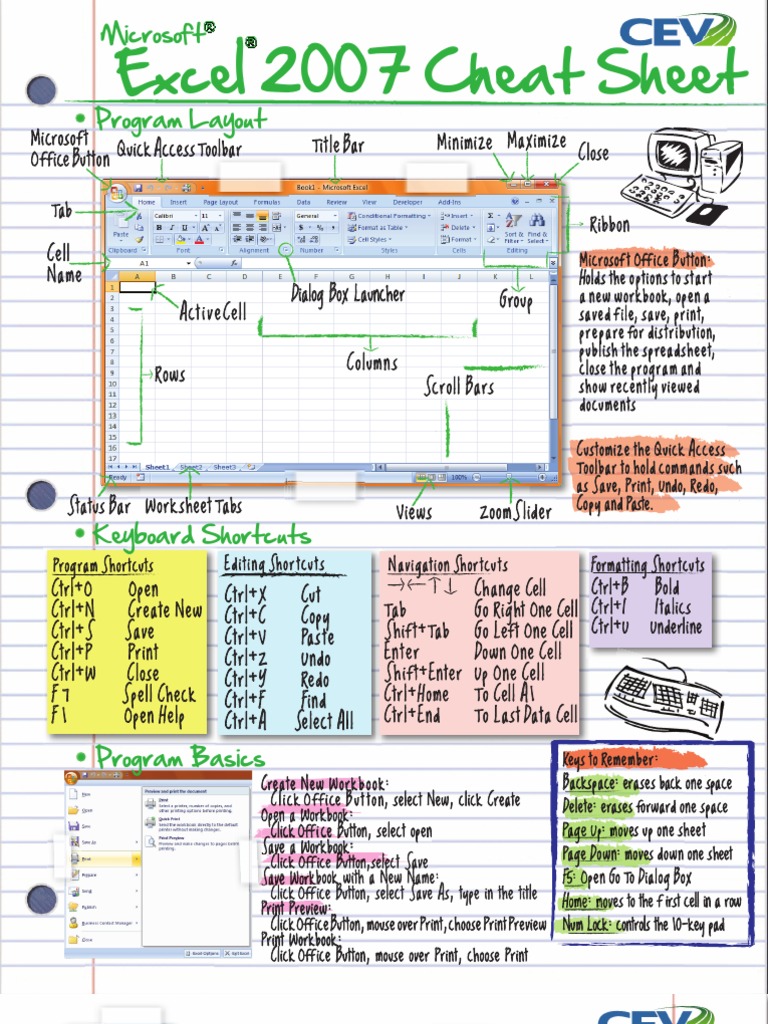 Microsoft®
CEV
Excel® 2007 Cheat Sheet
• Program Layout
Microsoft
Office Button
Quick Access Toolbar
Title Bar
Minimize
Maximize
Close
Tab
Cell
Name
Ribbon
Book1 - Microsoft Excel
Home Insert Page Layout Formulas Data Review View Developer Add-Ins
Calibri 11 General Conditional Formatting Insert
Format as Table Delete
Paste Cell Styles Format Sort & Filter Find & Select
Clipboard Font Alignment Number Styles Cells Editing
A1 fx
A B C D E F G H I J K L
1
2
3
4
5
6
7
8
9
10
11
12
13
14
15
16
17
Active Cell
Dialog Box Launcher
Group
Rows
Columns
Scroll Bars
Sheet1 Sheet2 Sheet3
Ready 100%
Status Bar
Worksheet Tabs
Views
Zoom Slider
Microsoft Office Button:
Holds the options to start
a new workbook, open a
saved file, save, print,
prepare for distribution,
publish the spreadsheet,
close the program and
show recently viewed
documents
Customize the Quick Access
Toolbar to hold commands such
as Save, Print, Undo, Redo,
Copy and Paste.
• Keyboard Shortcuts
Program Shortcuts
Ctrl+O Open
Ctrl+N Create New
Ctrl+S Save
Ctrl+P Print
Ctrl+W Close
F7 Spell Check
F1 Open Help
Editing Shortcuts
Ctrl+X Cut
Ctrl+C Copy
Ctrl+V Paste
Ctrl+Z Undo
Ctrl+Y Redo
Ctrl+F Find
Ctrl+A Select All
Navigation Shortcuts
→←↑↓ Change Cell
Tab Go Right One Cell
Shift+Tab Go Left One Cell
Enter Down One Cell
Shift+Enter Up One Cell
Ctrl+Home To Cell A1
Ctrl+End To Last Data Cell
Formatting Shortcuts
Ctrl+B Bold
Ctrl+I Italics
Ctrl+U Underline
• Program Basics
New
Open
Save
Save As
Print
Prepare
Send
Publish
Business Contact Manager
Close
Preview and print the document
Print
Select a printer, number of copies, and
other printing options before printing.
Quick Print
Send the workbook directly to the default
printer without making changes.
Print Preview
Preview and make changes to pages before
printing.
Excel Options Exit Excel
Create New Workbook:
Click Office Button, select New, click Create
Open a Workbook:
Click Office Button, select open
Save a Workbook:
Click Office Button, select Save
Save Workbook with a New Name:
Click Office Button, select Save As, type in the title
Print Preview:
Click Office Button, mouse over Print, choose Print Preview
Print Workbook:
Click Office Button, mouse over Print, choose Print
Keys to Remember:
Backspace: erases back one space
Delete: erases forward one space
Page Up: moves up one sheet
Page Down: moves down one sheet
F5: Open Go To Dialog Box
Home: moves to the first cell in a row
Num Lock: controls the 10-key pad
CEV